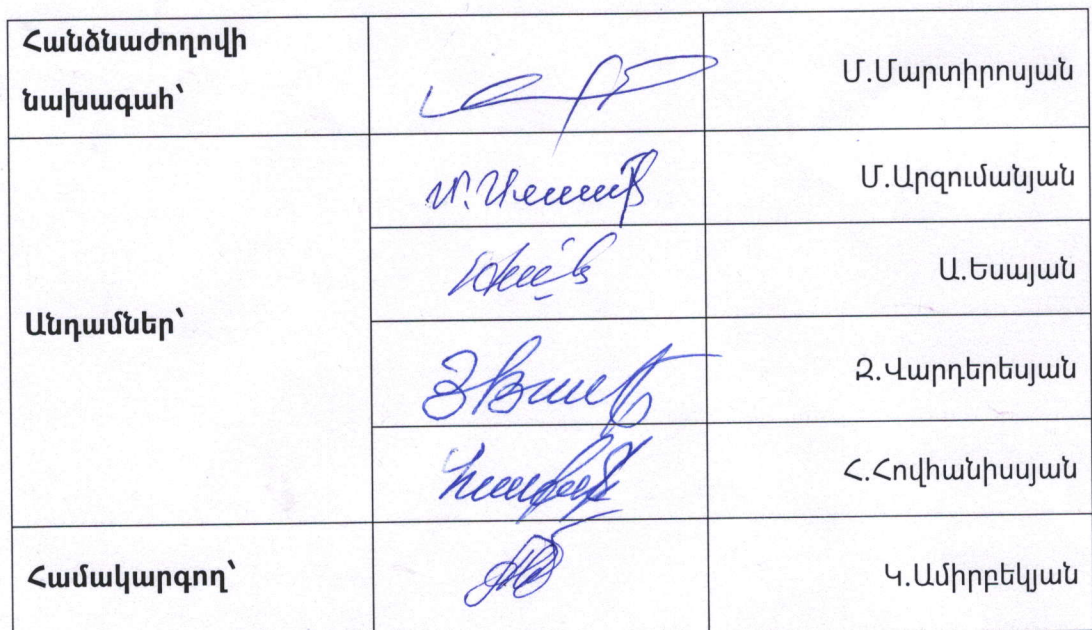 Հանձնաժողովի
նախագահ՝
Մ.Մարտիրոսյան
Մ.Արզումանյան
Ա.Եսայան
Անդամներ՝
Զ.Վարդերեսյան
Հ.Հովհանիսսյան
Համակարգող՝
Կ.Ամիրբեկյան